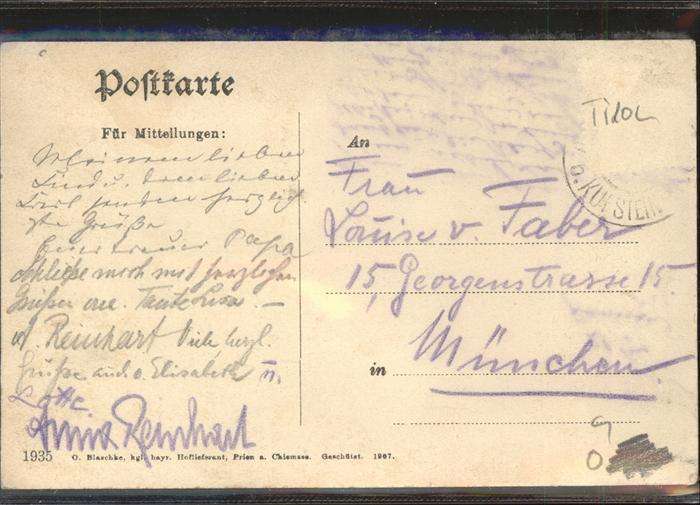 Postkarte
Für Mitteilungen:
Meinem lieben
Kinde u. dem lieben
Karl senden herzlich
ste Grüße
Euer treuer Papa
schließe mich mit herzlichen
Grüßen an. Tante Lisa. —
Reinhart Viele herzl.
Grüße auch v. Elisabeth u.
Lotte
Anna Reinhart
An
Frau
Louise v. Faber
15, Georgenstrasse 15.
in München.
Tirol
KUFSTEIN
9
0
1935 O. Blaschke, kgl. bayr. Hoflieferant, Prien a. Chiemsee. Geschützt. 1907.